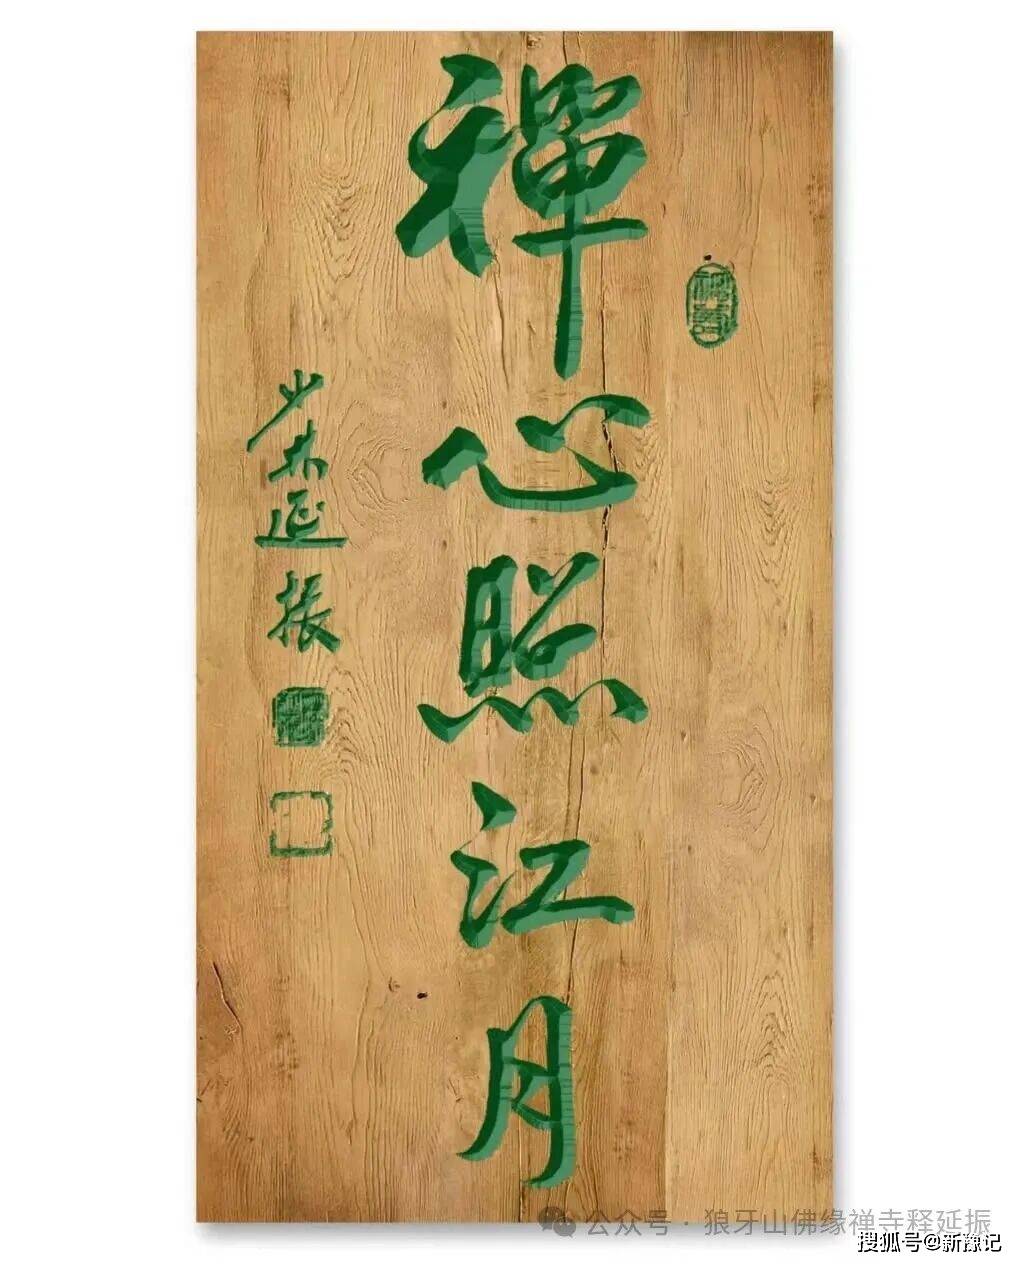 禪心照江月
少林延振
公众号 · 狼牙山佛缘禅寺释延振
搜狐号@新豫记